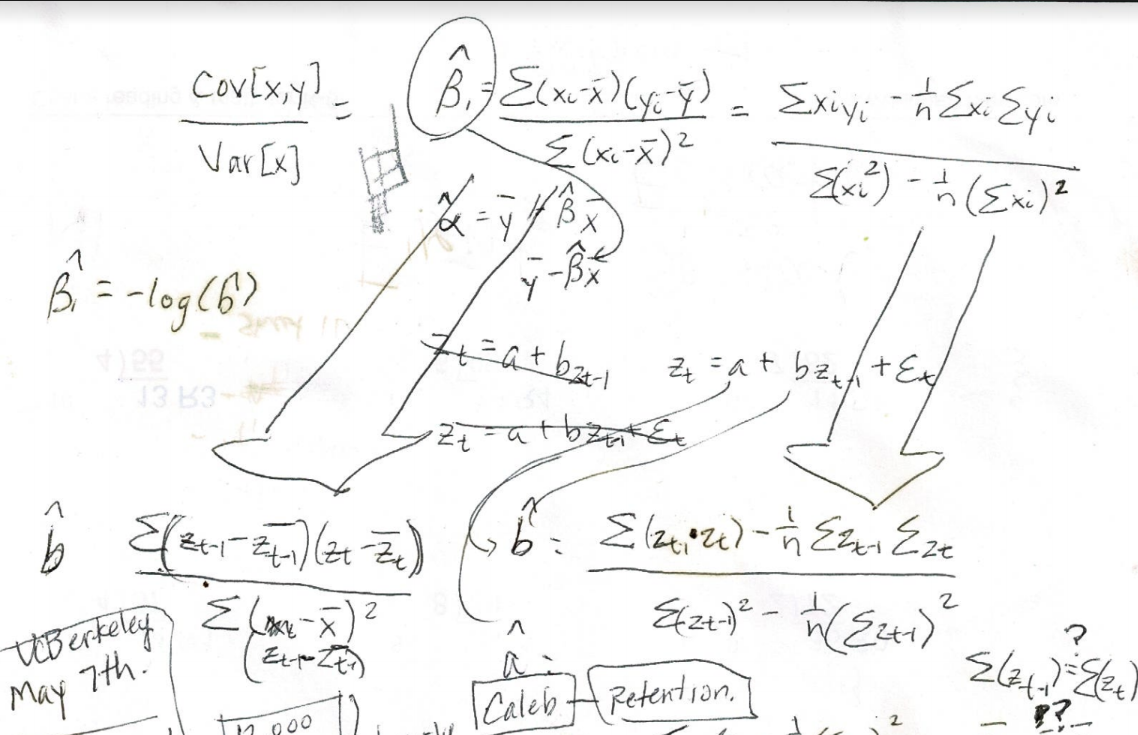 Cov[x,y] / Var[x] = β̂₁ = Σ(xᵢ-x̄)(yᵢ-ȳ) / Σ(xᵢ-x̄)² = Σxᵢyᵢ - 1/n Σxᵢ Σyᵢ / Σ(xᵢ²) - 1/n (Σxᵢ)²
α̂ = ȳ - β̂x̄
ȳ - β̂x̄
β̂₁ = -log(b̂)
z_t = a + bz_t-1
z_t = a + bz_t-1 + ε_t
z_t = a + bz_t-1 + ε_t
b̂ Σ(z_t-1 - z̄_t-1)(z_t - z̄_t) / Σ(xᵢ - x̄)²
(z_t-1 - z̄_t-1)
b̂ = Σ(z_t-1 • z_t) - 1/n Σz_t-1 Σz_t / Σ(z_t-1)² - 1/n (Σz_t-1)²
UCBerkeley
May 7th.
â =
Caleb Retention.
?
Σ(z_t-1) = Σ(z_t)
??
13 R3
4)55